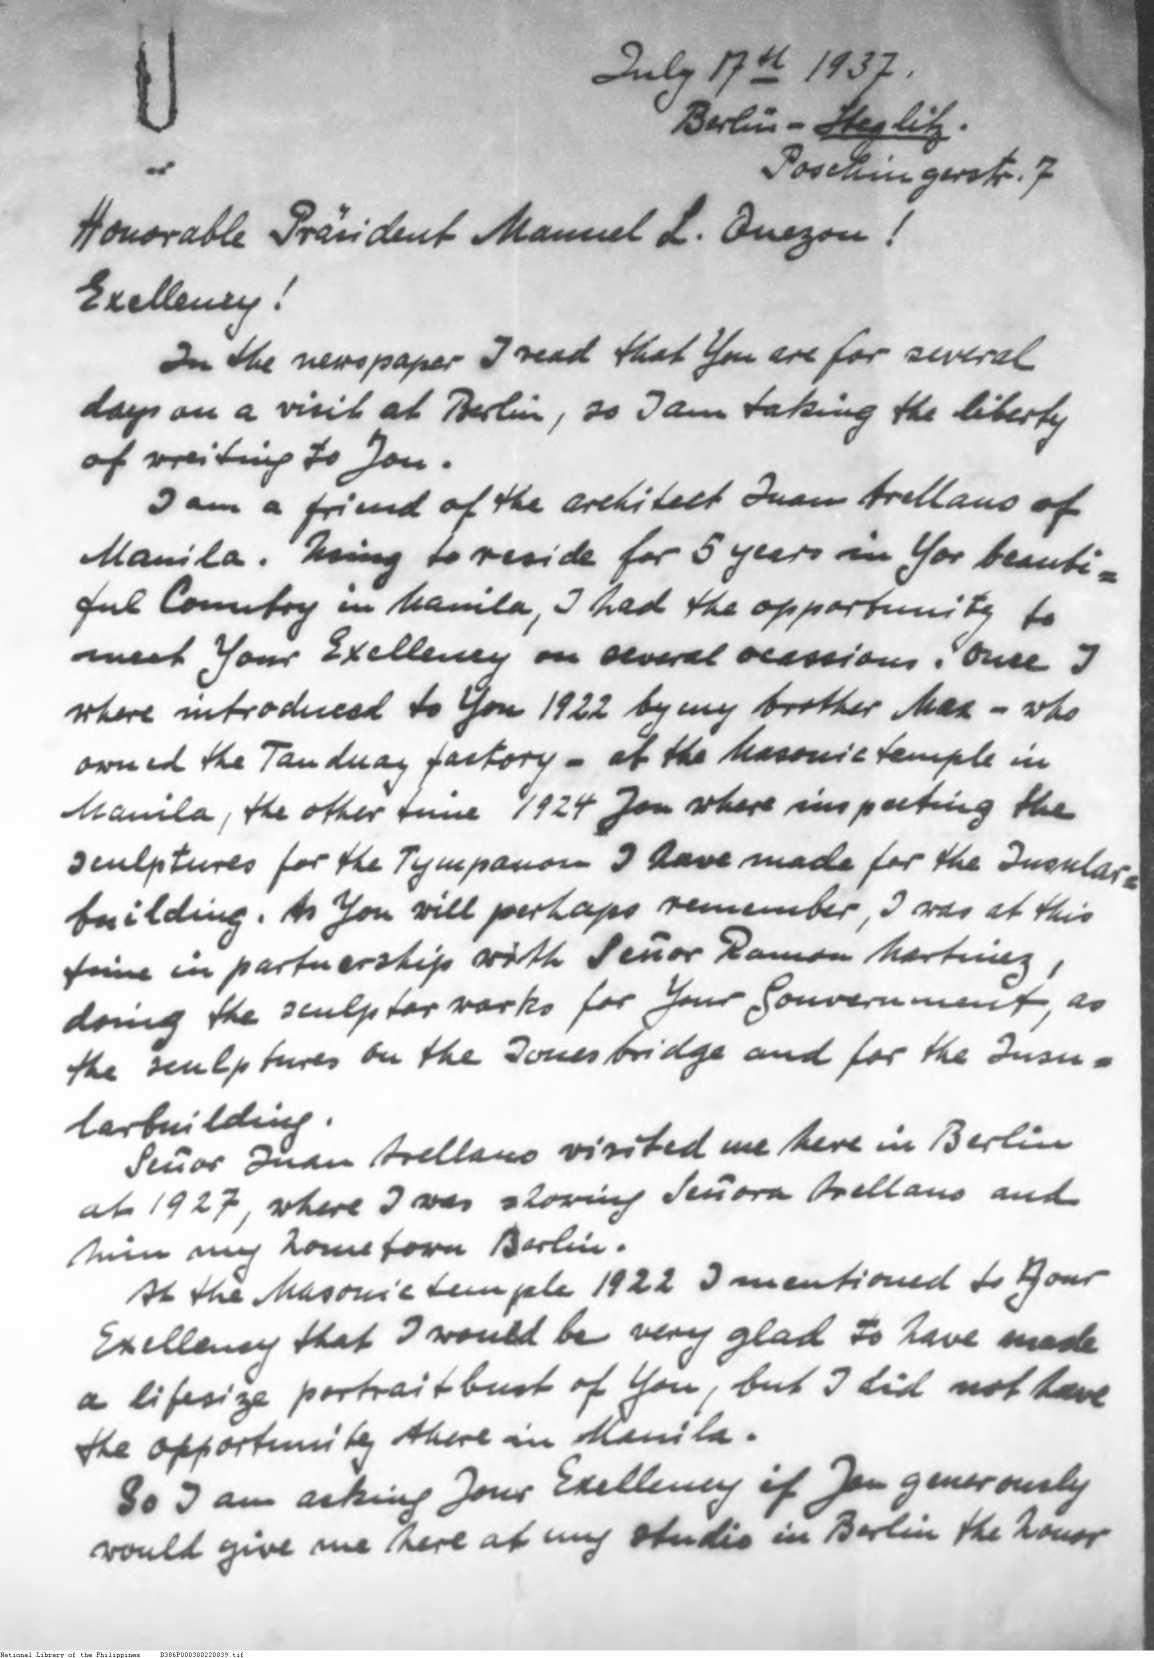 July 17th 1937.
Berlin - Steglitz.
Poschingerstr. 7
Honorable Präsident Manuel L. Quezon!
Exellency!
In the newspaper I read that You are for several
days on a visit at Berlin, so I am taking the liberty
of wreiting to You.
I am a friend of the architect Juan Arellano of
Manila. to reside for 5 years in Yor beauti=
ful Country in Manila, I had the opportunity to
meet Your Exellency on several ocassions. Once I
where introduced to You 1922 by my brother Max - who
owned the Tanduay factory - at the Masonic temple in
Manila, the other time 1924 You where inspecting the
sculptures for the Tympanon I have made for the Insular=
building. As You will perhaps remember, I was at this
time in partnership with Señor Ramon Martinez,
doing the sculptor works for Your Gouvernment, as
the sculptures on the Jonesbridge and for the Insu=
larbuilding.
Señor Juan Arellano visited me here in Berlin
at 1927, where I was showing Señora Arellano and
him my hometown Berlin.
At the Masonic temple 1922 I mentioned to Your
Exellency that I would be very glad to have made
a lifesize portraitbust of You, but I did not have
the opportunity there in Manila.
So I am asking Your Exellency if You generously
would give me here at my studio in Berlin the honor
National Library of the Philippines B386P000300220839.tif